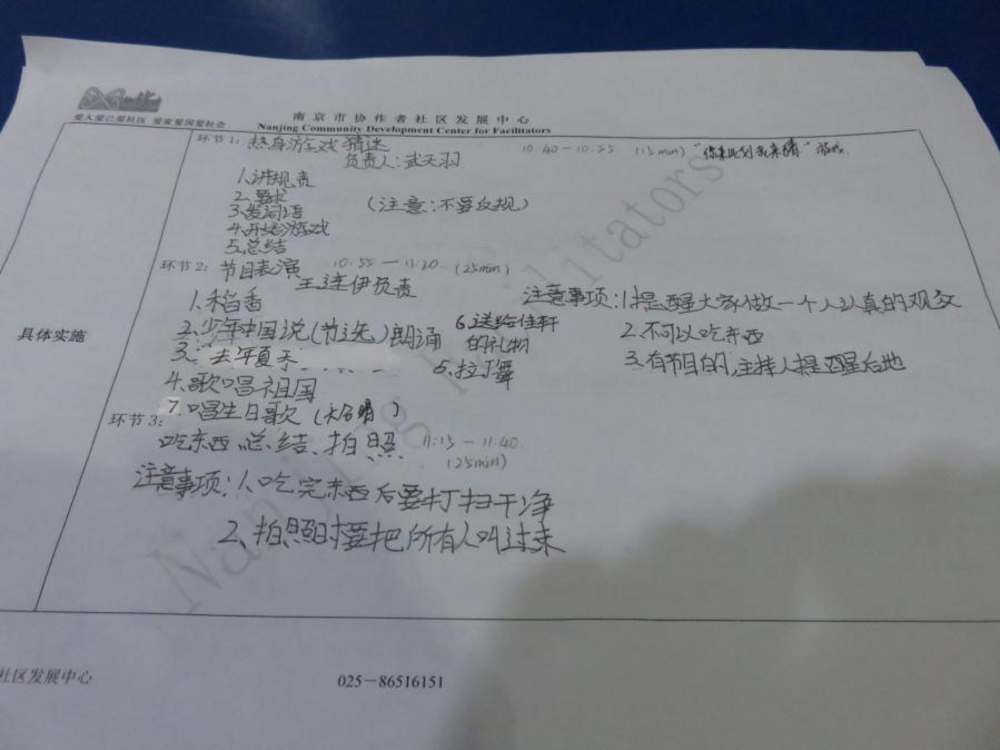 爱人爱己爱社区 爱家爱国爱社会
南京市协作者社区发展中心
Nanjing Community Development Center for Facilitators
具体实施
环节1: 热身游戏 猜迷 10:40-10:55 (15min) "你来比划我来猜"游戏
负责人:武天羽
1.讲规责
2.要求
3.发词语 (注意:不要反规)
4.开始游戏
5.总结
环节2: 节目表演 10:55-11:20 (25min)
王连伊负责
注意事项:1.提醒大家做一个人认真的观众
1.稻香
2.少年中国说(节选)朗诵 6.送给佳轩的礼物
2.不可以吃东西
3.去年夏天 5.拉丁舞
3.有节目的,主持人提醒后地
4.歌唱祖国
7.唱生日歌
环节3:
吃东西 总结、拍照 11:15-11:40
(25min)
注意事项:1.吃完东西后要打扫干净
2.拍照时要把所有人叫过来
Nanjing Facilitators
社区发展中心
025-86516151